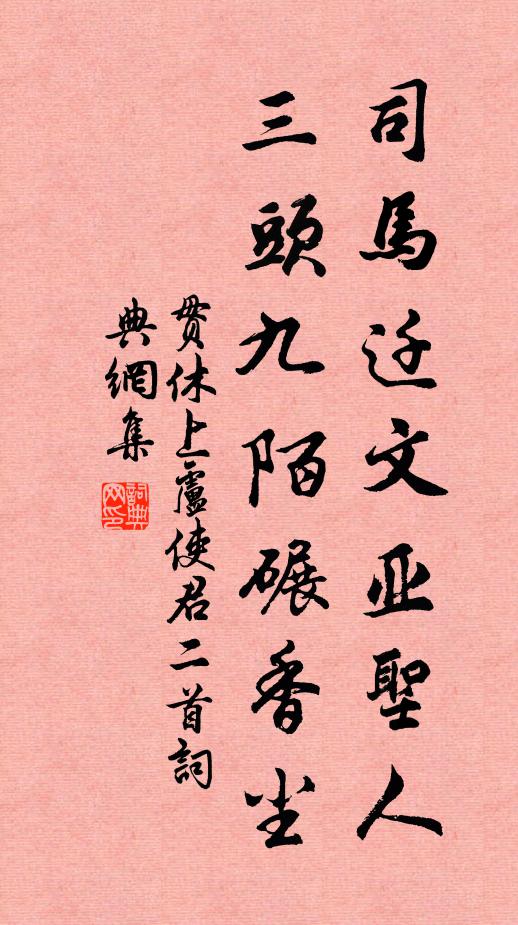 司馬迁文亚聖人
三頭九陌碾香尘
贯休上盧使君二首詞
典網集
詞典网印